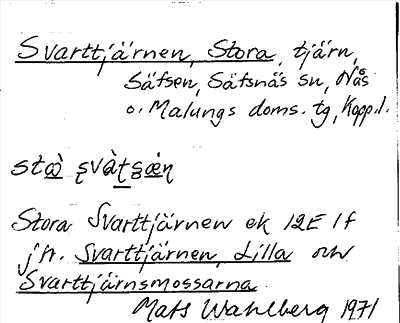 Svarttjärnen, Stora, tjärn,
Säfsen, Säfsnäs sn, Nås
o. Malungs doms. tg, Kopp. l.
Stora Svarttjärnen ek 12E 1f
jfr. Svarttjärnen, Lilla och
Svarttjärnsmossarna
Mats Wahlberg 1971